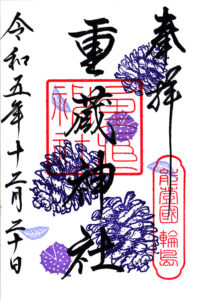 奉拝
能登國 輪島
重蔵神社
令和五年十二月二十日